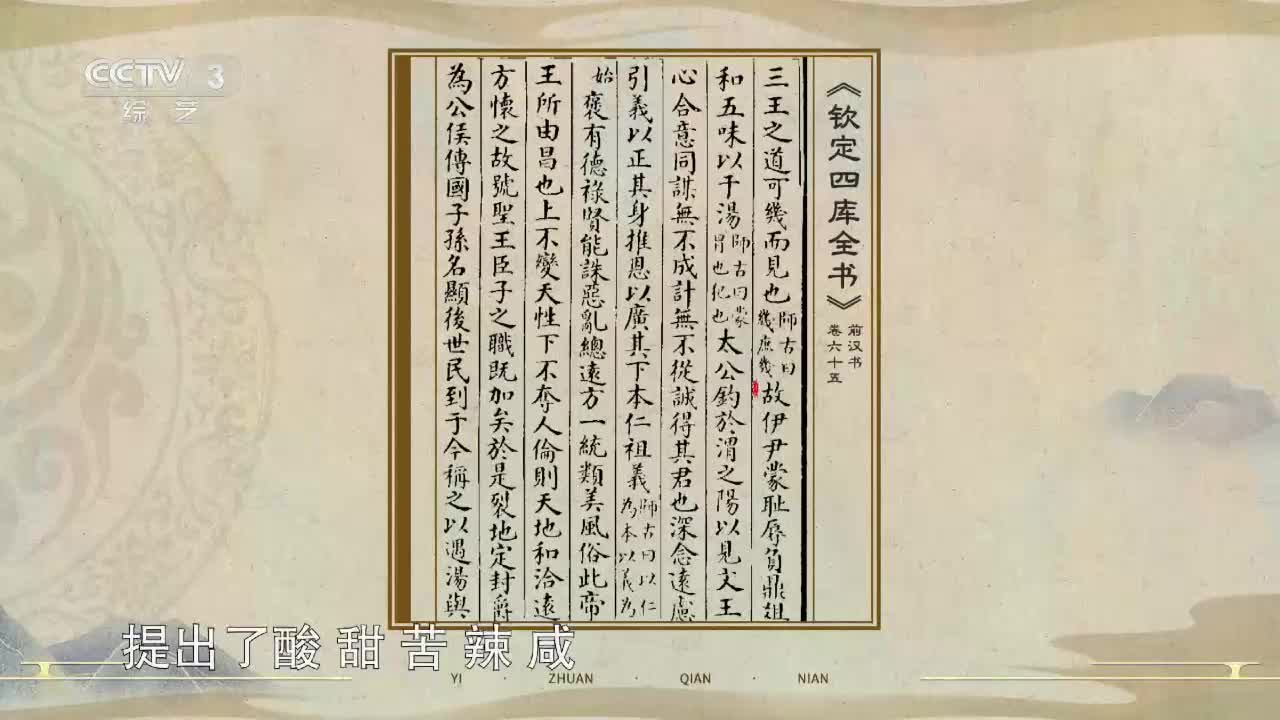 CCTV 3
综艺
《钦定四库全书》
前汉书
卷六十五
三王之道可幾而見也師古曰幾庶幾故伊尹蒙耻辱負鼎俎
和五味以干湯師古曰蒙冒也犯也太公釣於渭之陽以見文王
心合意同謀無不成計無不從誠得其君也深念遠慮
引義以正其身推恩以廣其下本仁祖義師古曰以仁為本以義為
始褒有德祿賢能誅惡亂總遠方一統類美風俗此帝
王所由昌也上不變天性下不奪人倫則天地和洽遠
方懷之故號聖王臣子之職既加矣於是裂地定封爵
為公侯傳國子孫名顯後世民到于今稱之以遇湯與
提出了酸甜苦辣咸
YI · ZHUAN · QIAN · NIAN